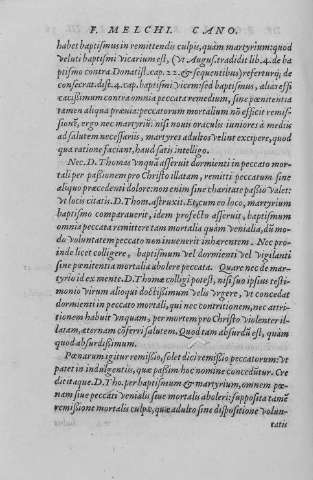 F. MELCHI. CANO.
habet baptismus in remittendis culpis, quàm martyrium: quod
veluti baptismi vicarium est, (vt August. tradidit lib. 4. de ba
ptismo contra Donatist. cap. 22. & sequentibus) referturq; de
consecrat. dist. 4. cap. baptismi vicem: sed baptismus, alias essi
cacissimum contra omnia peccata remedium, sine pœnitentia
tamen aliqua præuia: peccatorum mortalium nõ efficit remis-
sionẽ, ergo nec martyriũ: nisi nouis oraculis iuniores à mediu
ad salutem necessariis, martyres adultos velint excipere, quod
qua ratione faciant, haud satis intelligo.
Nec. D. Thomas vnquã asseruit dormienti in peccato mor-
tali per passionem pro Christo illatam, remitti peccatum sine
aliquo præcedenti dolore: non enim sine charitate passio valet:
vt locis citatis. D. Thom. astruxit. Et cum eo loco, martyrium
baptismo comparauerit, idem profecto asseruit, baptismum
omnia peccata remittere tam mortalia quàm venialia, dũ mo-
do voluntatem peccato non inuenerit inhærentem. Nec pro-
inde licet colligere, baptismum vel dormienti vel vigilanti
sine pœnitentia mortalia abolere peccata. Quare nec de mar-
tyrio id ex mente. D. Thomæ colligi potest, nisi suo ipsius testi-
monio virum alioqui doctissimum velis vrgere, vt concedat
dormienti in peccato mortali, qui nec contritionem, nec attri-
tionem habuit vnquam, per mortem pro Christo violenter il-
latam, æternam cõferri salutem. Quod tam absurdũ est, quàm
quod absurdissimum.
Pœnarum igitur remissio, solet dici remissio peccatorum: vt
patet in indulgentiis, quæ passim hoc nomine concedũtur. Cre
didit itaque. D. Tho. per baptismum & martyrium, omnem pœ
nam siue peccati venialis siue mortalis aboleri: supposita tamẽ
remissione mortalis culpæ, quæ adulto sine dispositione volun-
tatis